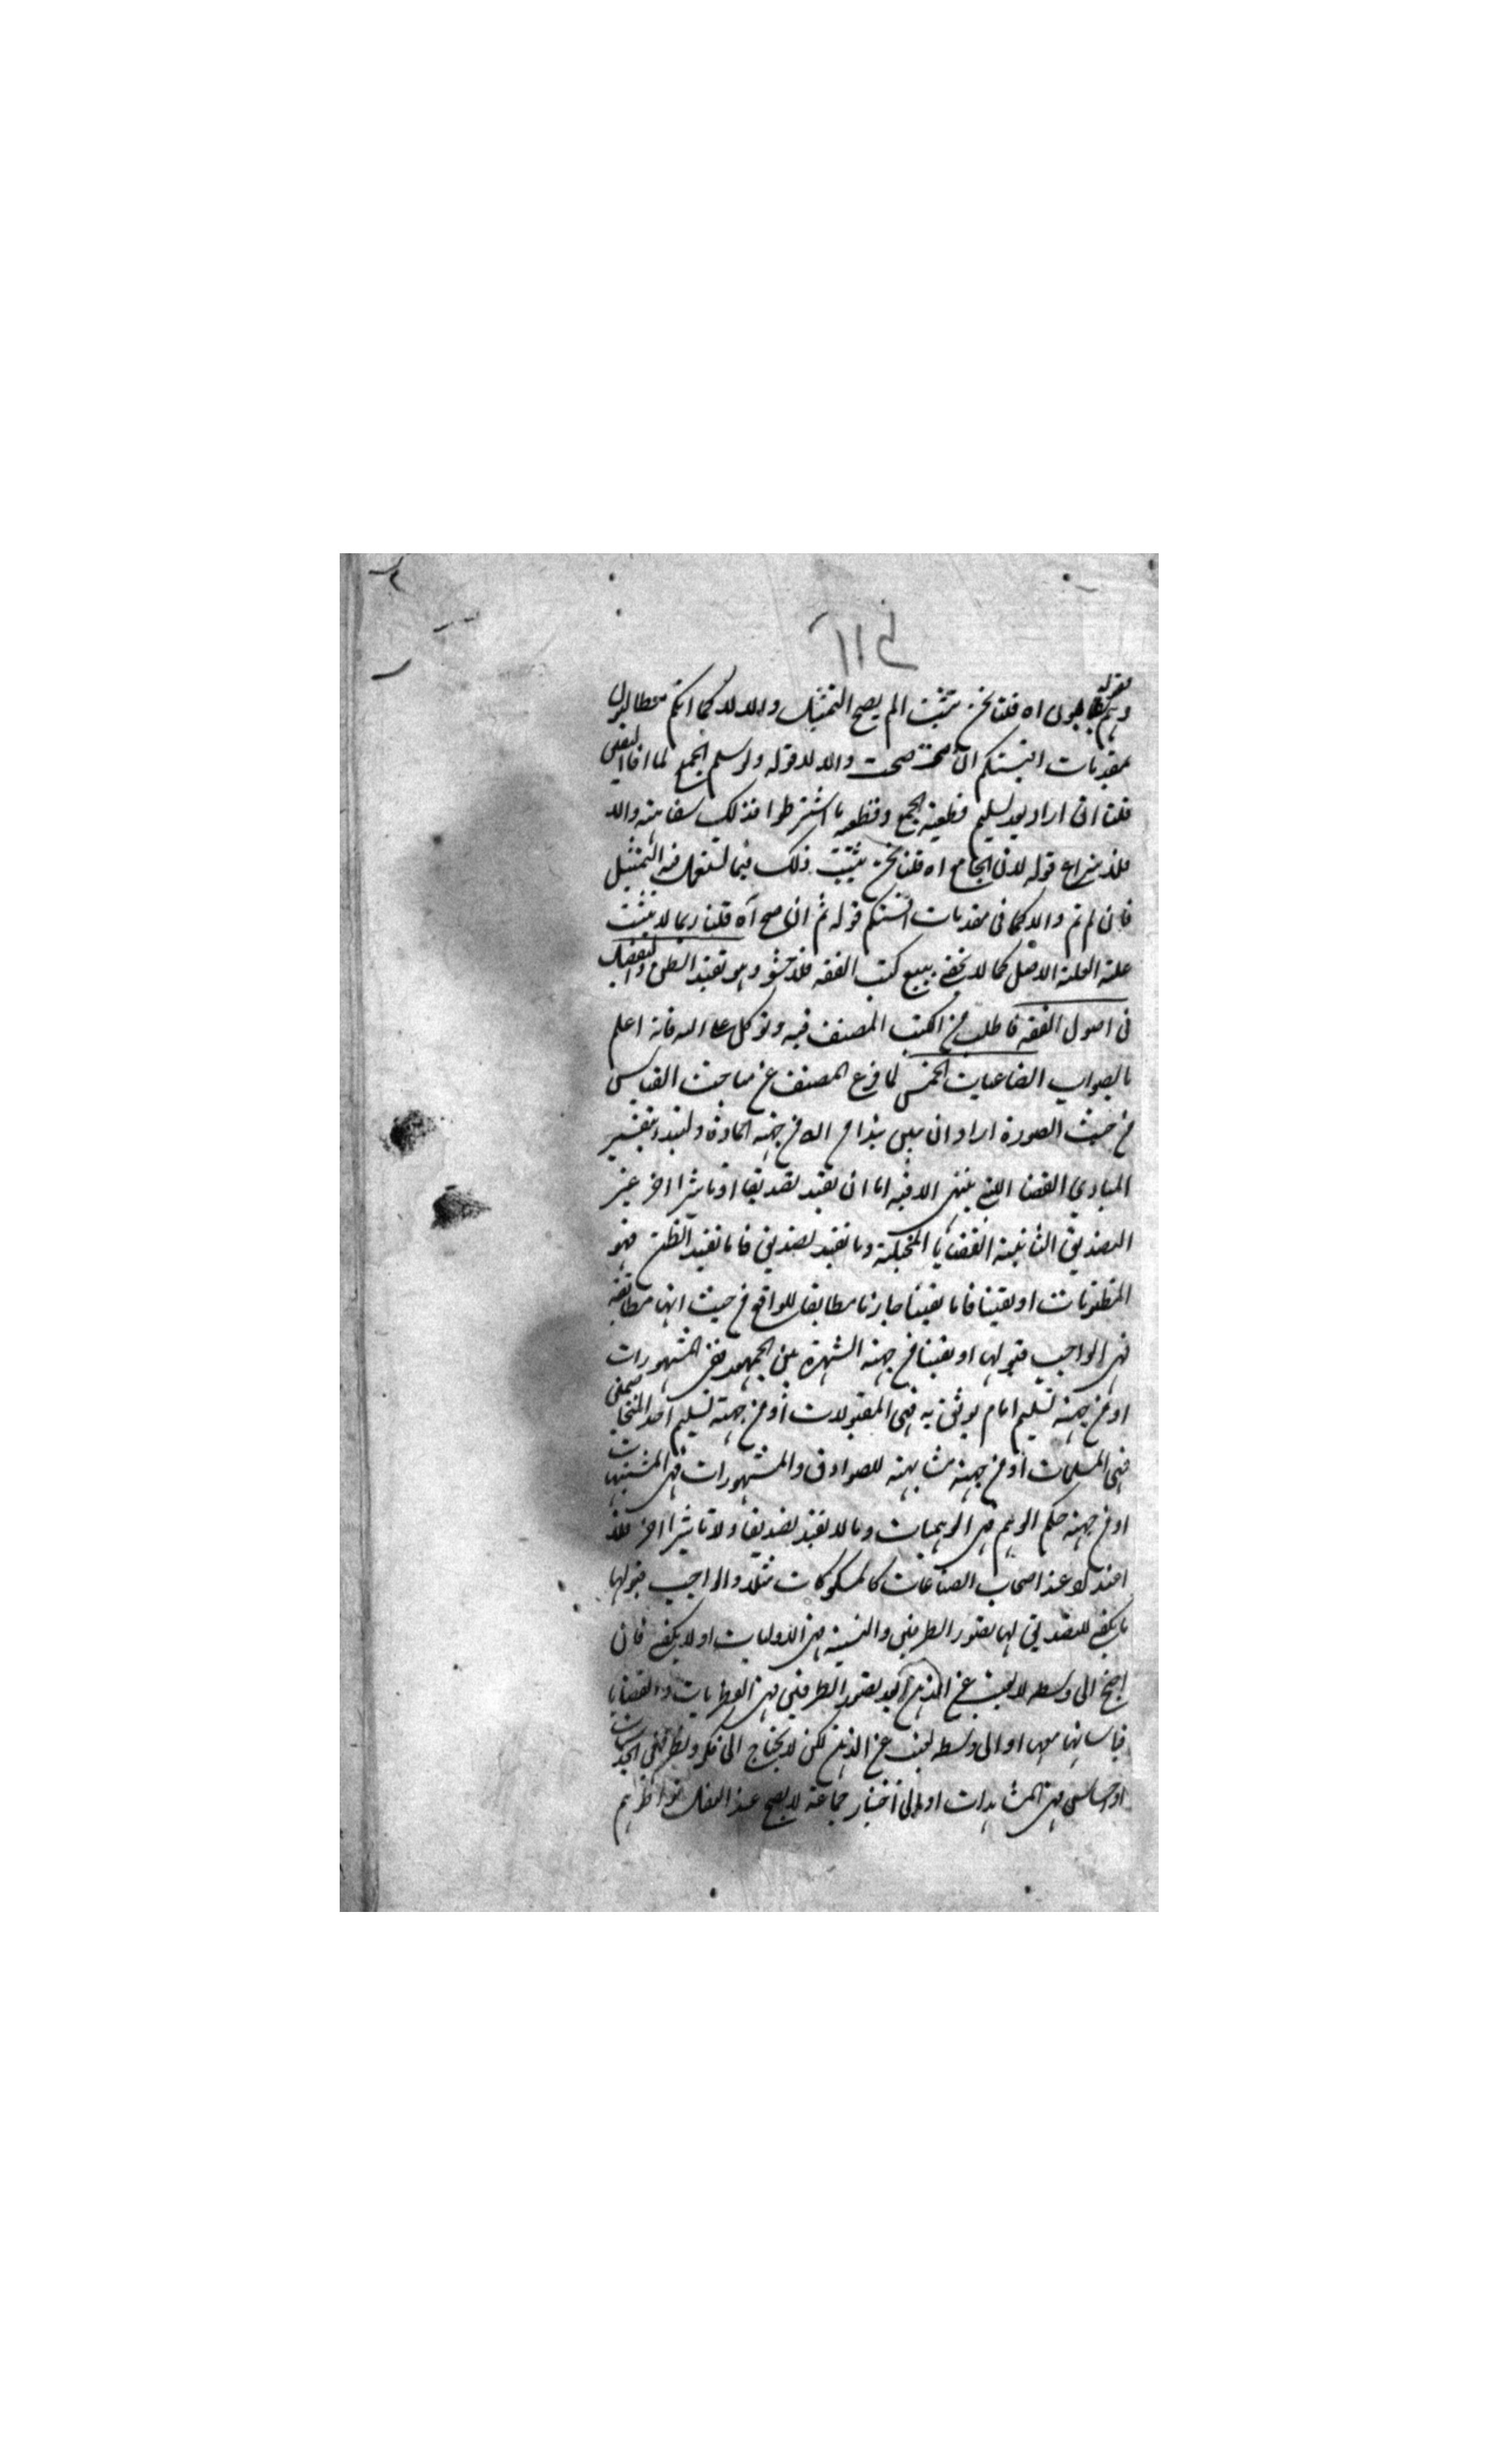 قوله
وهم يطالبون اه قلنا نحن نثبت الم يصح التمثيل والا لا كما انكم تطالبون
بمقدمات اقيستكم ان صحت صحت والا لا قوله ولو سلم الجمع لما افاد اليقين
قلنا ان اراد بعد تسليم قطعية الجمع وقطعية ما اشترطوا فذلك سفاهته والا
فلا نزاع قوله لان الجامع اه قلنا نحن نثبت ذلك فيما نستعمل فيه التمثيل
فان تم تم والا كما في مقدمات اقيستكم قوله ثم ان صح آه قلنا ربما لا يثبت
علية العلة الاصل كما لا يخفى يتبع كتب الفقه فلا حشو وهو تفيد الظن والتفصيل
في اصول الفقه فاطلب من الكتب المصنف فيه وتوكل على الله فانه اعلم
بالصواب الصناعات الخمس لما فرغ المصنف عن مباحث القياس
من حيث الصورة اراد ان يبين من جهة المادة ولنبدء بتفسير
المبادي القضايا اللتي ينتهي الاقيسة اما ان تفيد تصديقا او تاثيرا اخر غير
التصديق الثانية القضايا المخيلة وما تفيد تصديق فاما تفيد الظن فهو
المظنونات او يقينا فاما يقينا جازما مطابقا للواقع من حيث انها مطابقة
فهي الواجب قبولها او يقينا من جهة الشهرة بين الجمهور فهي المشهورات
او من جهة تسليم امام يوثق به فهي المقبولات او من جهة تسليم احد المتخاصمين
فهي المسلمات او من جهة مشابهته للصوادق والمشهورات فهي المشبهات
او من جهة حكم الوهم فهي الوهميات وما لا تفيد تصديقا ولا تاثيرا اخر فلا
عند اصحاب الصناعات كالمشكوكات مثلا والواجب قبولها
ما يكفي للتصديق لها تصور الطرفين والنسبة فهي الاوليات او لا يكفي فان
احتج الى وسط لا يغيب عن الذهن عند تصور الطرفين فهي الفطريات والقضايا
قياساتها معها او الى وسط يغيب عن الذهن لكن لا يحتاج الى فكر ونظر فهي الحدسيات
او احساس فهي المشاهدات او الى اخبار جماعة لا يصح عند العقل تواطؤهم